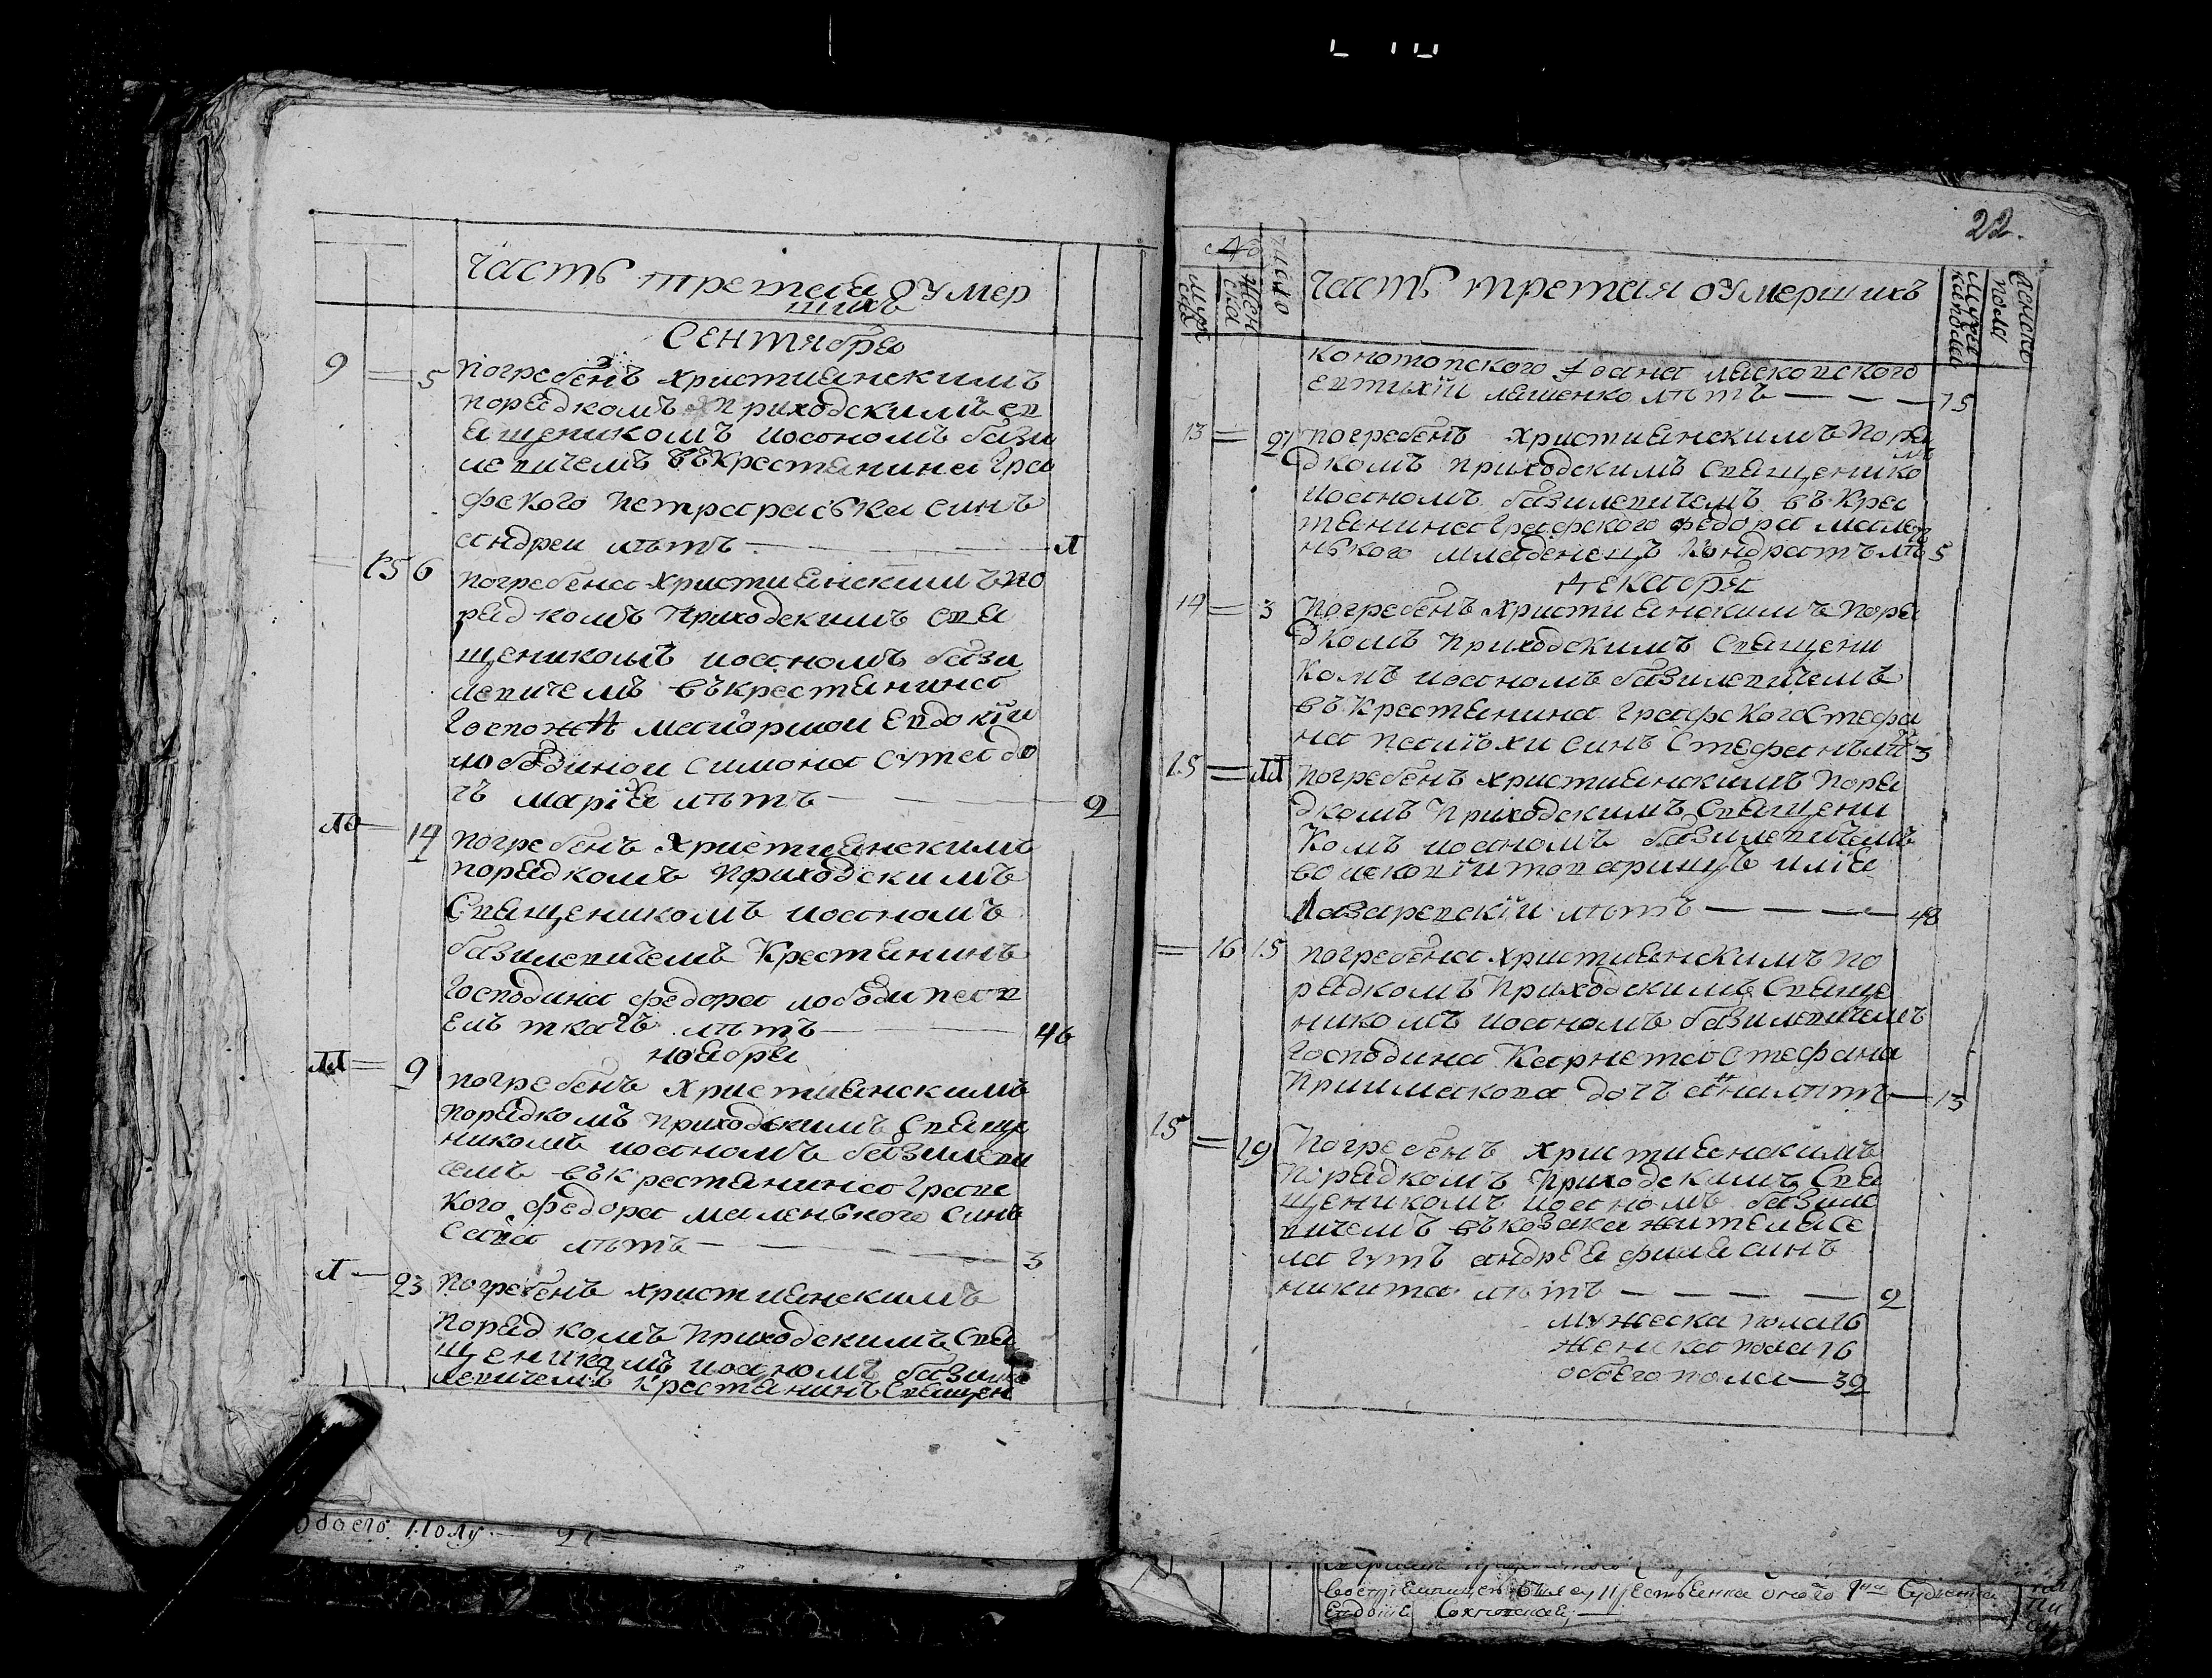 часть третая оумер
шихъ
Сентября
9 = 5 погребенъ христианскимъ
порядкомъ приходскимъ св
ященикомъ иоаномъ бази
левичемъ въ крестянина гра
фского петра
синъ
андреи лѣтъ — 1
= 15 6 погребена христианскимъ по
рядкомъ приходскимъ свя
щеникомъ иоаномъ бази
левичемъ въ крестянина
Госпожи маиоршои евдокѣи
лободинои симона сутеа до
чъ марія лѣтъ — 2
10 — 14 погребенъ христианскимъ
порядкомъ приходскимъ
Священикомъ иоаномъ
базилевичемъ Крестянинъ
Господина федора лободи пав
елъ ткачъ лѣтъ — 46
ноября
11 = 9 погребенъ христианскимъ
порядкомъ приходскимъ Свяще
никомъ иоаномъ базилеви
чемъ въ крестянина графс
кого федора маленького синъ
сава лѣтъ — 3
1 — 23 погребенъ христианскимъ
порядкомъ приходскимъ Свя
щеникомъ иоаномъ бази
левичемъ крестянинъ Священ
Обоего Полу 21=
22.
№
муж
ска
жен
ска
число
часть третая оумершихъ
мужеска
пола
женска
конотопского иоана
евтихіи лашенко лѣтъ — 75
13 = 27 погребенъ христианскимъ поря
дкомъ приходскимъ Священико
мъ
иоаномъ базилевичемъ въ крес
тянина Графского федора мале
нького младенецъ Кондратъ лѣтъ 5
декабря
14 = 3 Погребенъ христианскимъ поря
дкомъ приходскимъ Священи
комъ иоаномъ базилевичемъ
въ Крестянина графского Стефа
на
синъ Стефанъ лѣтъ 3
15 = 11 погребенъ христианскимъ поря
дкомъ приходскимъ Священи
комъ иоаномъ базилевичемъ
воисковіи товарищъ илія
Лазаревскіи лѣтъ — 48
= 16 15 погребена христианскимъ по
рядкомъ приходскимъ Свяще
никомъ иоаномъ базилевичемъ
Господина Карнета Стефана
Приимакова дочъ анна лѣтъ — 13
15 = 19 Погребенъ христианскимъ
порядкомъ приходскимъ Свя
щеникомъ иоаномъ базиле
вичемъ въ козака жителя се
ла гутъ андрея филя синъ
никита лѣтъ — 2
мужеска пола 16
женска пола 16
обоего пола — 32